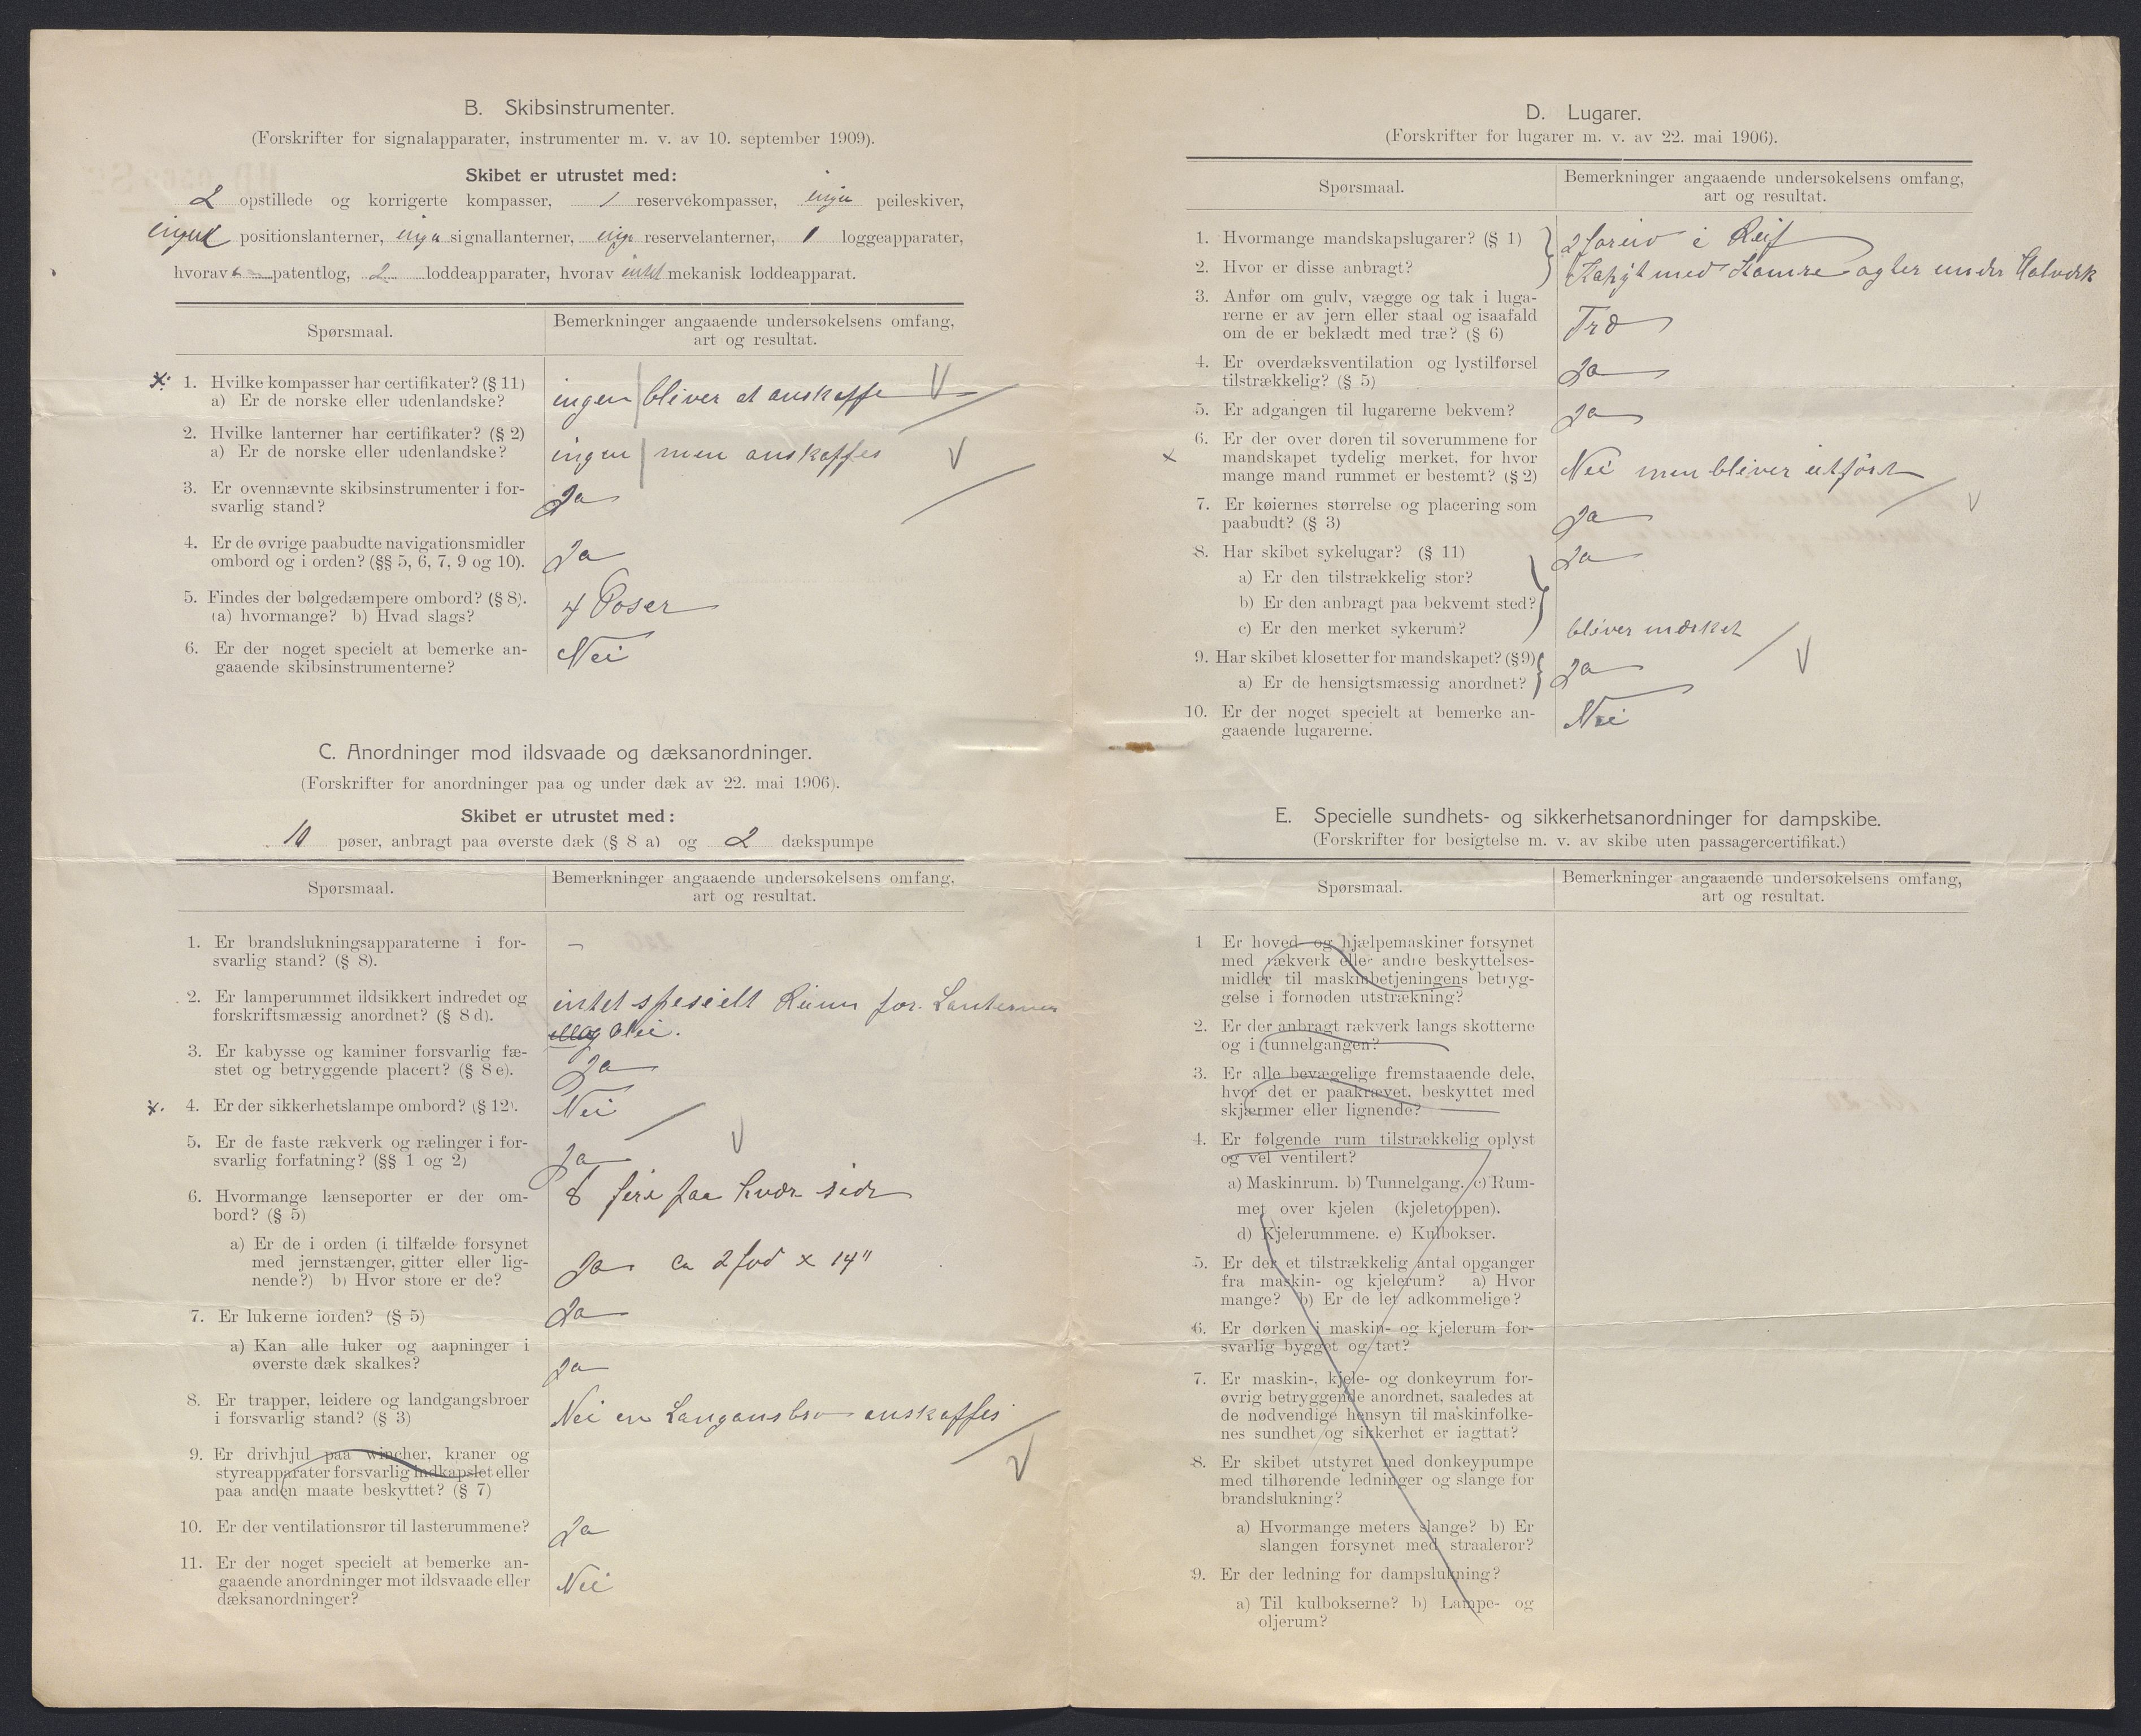 B. Skibsinstrumenter.
(Forskrifter for signalapparater, instrumenter m. v. av 10. september 1909).
Skibet er utrustet med:
2 opstillede og korrigerte kompasser, 1 reservekompasser, ingen peileskiver,
ingen positionslanterner, inga signallanterner, inga reservelanterner, 1 loggeapparater,
hvorav patentlog, 2 loddeapparater, hvorav intet mekanisk loddeapparat.
Spørsmaal.
Bemerkninger angaaende undersøkelsens omfang,
art og resultat.
x. 1. Hvilke kompasser har certifikater? (§ 11)
a) Er de norske eller udenlandske?
ingen / bliver at anskaffe V
2. Hvilke lanterner har certifikater? (§ 2)
a) Er de norske eller udenlandske?
ingen / men anskaffes V
3. Er ovennævnte skibsinstrumenter i for-
svarlig stand?
Ja
4. Er de øvrige paabudte navigationsmidler
ombord og i orden? (§§ 5, 6, 7, 9 og 10).
Ja
5. Findes der bølgedæmpere ombord? (§ 8).
(a) hvormange? b) Hvad slags?
4 Poser
6. Er der noget specielt at bemerke an-
gaaende skibsinstrumenterne?
Nei
C. Anordninger mod ildsvaade og dæksanordninger.
(Forskrifter for anordninger paa og under dæk av 22. mai 1906).
Skibet er utrustet med:
10 pøser, anbragt paa øverste dæk (§ 8 a) og 2 dækspumpe
Spørsmaal.
Bemerkninger angaaende undersøkelsens omfang,
art og resultat.
1. Er brandslukningsapparaterne i for-
svarlig stand? (§ 8).
–
2. Er lamperummet ildsikkert indredet og
forskriftsmæssig anordnet? (§ 8 d).
intet spesielt Rum for Lanterner
Olie.
3. Er kabysse og kaminer forsvarlig fæ-
stet og betryggende placert? (§ 8 e).
Ja
x. 4. Er der sikkerhetslampe ombord? (§ 12).
Nei V
5. Er de faste rækverk og rælinger i for-
svarlig forfatning? (§§ 1 og 2)
Ja
6. Hvormange lænseporter er der om-
bord? (§ 5)
8 fire paa hver side
a) Er de i orden (i tilfælde forsynet
med jernstænger, gitter eller lig-
nende?) b) Hvor store er de?
Ja ca 2 fod x 14"
7. Er lukerne iorden? (§ 5)
Ja
a) Kan alle luker og aapninger i
øverste dæk skalkes?
Ja
8. Er trapper, leidere og landgangsbroer
i forsvarlig stand? (§ 3)
Nei en Langansbro anskaffes V
9. Er drivhjul paa wincher, kraner og
styreapparater forsvarlig indkapslet eller
paa anden maate beskyttet? (§ 7)
10. Er der ventilationsrør til lasterummene?
Ja
11. Er der noget specielt at bemerke an-
gaaende anordninger mot ildsvaade eller
dæksanordninger?
Nei
D. Lugarer.
(Forskrifter for lugarer m. v. av 22. mai 1906).
Spørsmaal.
Bemerkninger angaaende undersøkelsens omfang,
art og resultat.
1. Hvormange mandskapslugarer? (§ 1)
2 i Ruf
2. Hvor er disse anbragt?
Kahyt med agter under Halvdæk
3. Anfør om gulv, vægge og tak i luga-
rerne er av jern eller staal og isaafald
om de er beklædt med træ? (§ 6)
Træ
4. Er overdæksventilation og lystilførsel
tilstrækkelig? (§ 5)
Ja
5. Er adgangen til lugarerne bekvem?
Ja
6. Er der over døren til soverummene for
x mandskapet tydelig merket, for hvor
mange mand rummet er bestemt? (§ 2)
Nei men bliver utført V
7. Er køiernes størrelse og placering som
paabudt? (§ 3)
Ja
8. Har skibet sykelugar? (§ 11)
Ja
a) Er den tilstrækkelig stor?
b) Er den anbragt paa bekvemt sted?
c) Er den merket sykerum?
bliver mærket V
9. Har skibet klosetter for mandskapet? (§ 9)
a) Er de hensigtsmæssig anordnet?
Ja
10. Er der noget specielt at bemerke an-
gaaende lugarerne.
Nei
E. Specielle sundhets- og sikkerhetsanordninger for dampskibe.
(Forskrifter for besigtelse m. v. av skibe uten passagercertifikat.)
Spørsmaal.
Bemerkninger angaaende undersøkelsens omfang,
art og resultat.
1 Er hoved- og hjælpemaskiner forsynet
med rækverk eller andre beskyttelses-
midler til maskinbetjeningens betryg-
gelse i fornøden utstrækning?
2. Er der anbragt rækverk langs skotterne
og i tunnelgangen?
3. Er alle bevægelige fremstaaende dele,
hvor det er paakrævet, beskyttet med
skjærmer eller lignende?
4. Er følgende rum tilstrækkelig oplyst
og vel ventilert?
a) Maskinrum. b) Tunnelgang. c) Rum-
met over kjelen (kjeletoppen).
d) Kjelerummene. e) Kulbokser.
5. Er der et tilstrækkelig antal opganger
fra maskin- og kjelerum? a) Hvor
mange? b) Er de let adkommelige?
6. Er dørken i maskin- og kjelerum for-
svarlig bygget og tæt?
7. Er maskin-, kjele- og donkeyrum for-
øvrig betryggende anordnet, saaledes at
de nødvendige hensyn til maskinfolke-
nes sundhet og sikkerhet er iagttat?
8. Er skibet utstyret med donkeypumpe
med tilhørende ledninger og slange for
brandslukning?
a) Hvormange meters slange? b) Er
slangen forsynet med straalerør?
9. Er der ledning for dampslukning?
a) Til kulbokserne? b) Lampe- og
oljerum?